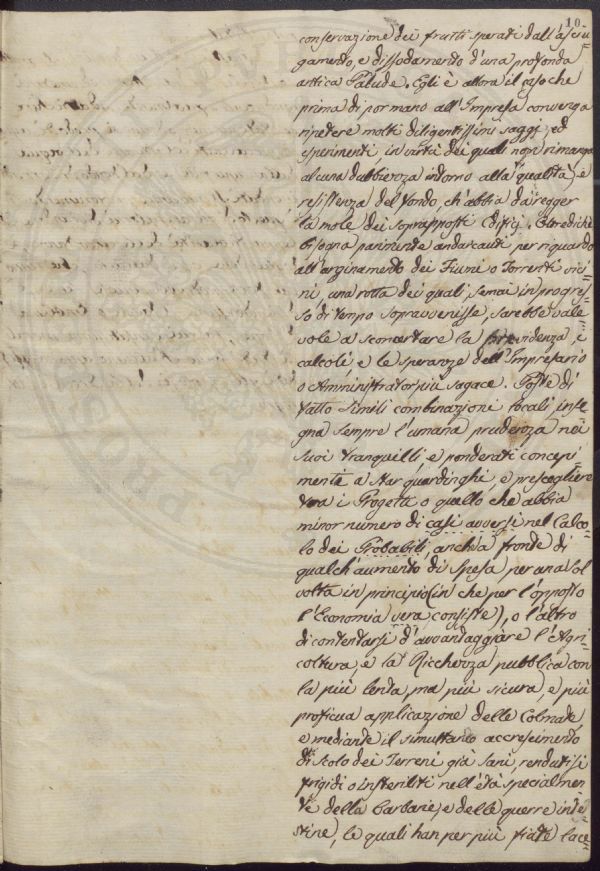 10.
conservazione dei frutti sperati dall'asciu=
gamento, e dissodamento d'una profonda
antica Palude. Egli è allora il caso che
prima di por mano all'Impresa convenga
ripetere molti diligentissimi saggj, ed
sperimenti, in virtù dei quali non rimanga
alcuna dubbiezza intorno alla qualità, e
resistenza del fondo, ch'abbia da regger
la mole dei soprapposti Edificj. Oltredichè
bisogna parimente andar cauti per riguardo
all'arginamento dei Fiumi o Torrenti vici=
ni, una rotta dei quali, se mai in progres=
so di tempo sopravvenisse, sarebbe vale=
vole a sconcertare la previdenza, i
calcoli, e le speranze dell'Impresario
o Amministrator più sagace. Poste di
fatto simili combinazioni locali, inse
gna sempre l'umana prudenza nei
suoi tranquilli, e ponderati concepi
menti a star guardinghi, e prescegliere
tra i Progetti o quello che abbia
minor numero di casi avversi nel Calco=
lo dei Probabili, anch'a fronte di
qualch'aumento di spesa per una sol
volta in principio (in che per l'opposto
l'Economia vera consiste), o l'altro
di contentarsi d'avvantaggiare l'Agri=
coltura, e la Ricchezza pubblica con
la più lenta, ma più sicura, e più
proficua applicazione delle Colmate
e mediante il simultaneo accrescimento
di scolo dei Terreni già sani, rendutisi
frigidi o insteriliti nell'età specialmen
te della barbarie, e delle guerre inte
stine, le quali han per più fiate lace=